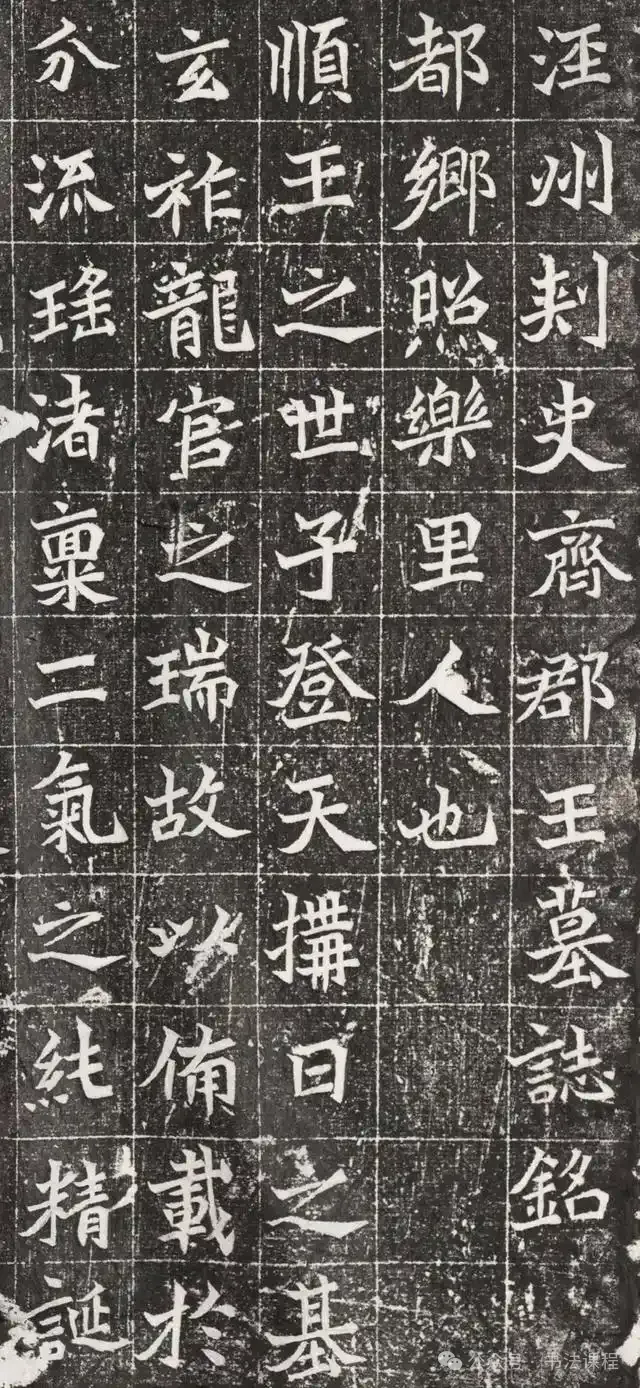 涇州刾史齊郡王墓誌銘
都鄉照樂里人也
順王之世子登天構日之基
玄祚龍官之瑞故以俻載於
分流瑤渚稟二氣之純精誕
公众号·书法课程